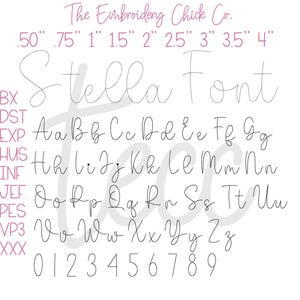 The Embroidery Chick Co.
.50" .75" 1" 1.5" 2" 2.5" 3" 3.5" 4"
Stella Font
BX
DST
EXP
HUS
INF
JEF
PES
VP3
XXX
Aa Bb Cc Dd Ee Ff Gg
Hh Ii Jj Kk Ll Mm Nn
Oo Pp Qq Rr Ss Tt Uu
Vv Ww Xx Yy Zz
0 1 2 3 4 5 6 7 8 9
tecc